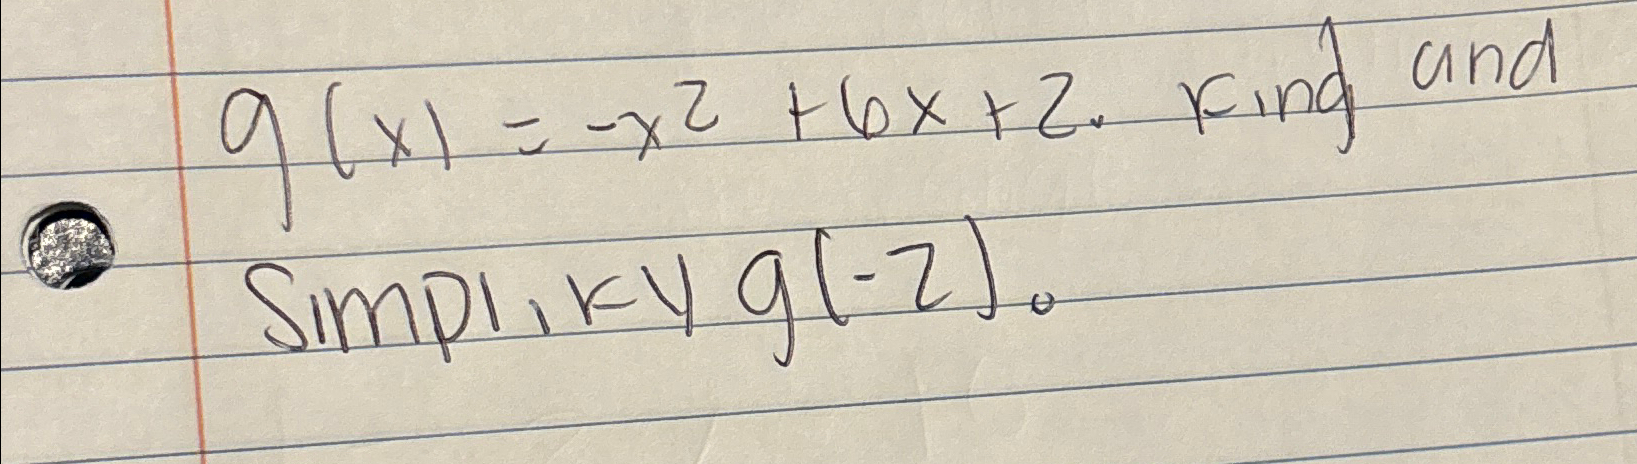 g(x) = -x² + 6x + 2. Find and
Simplify g(-2).